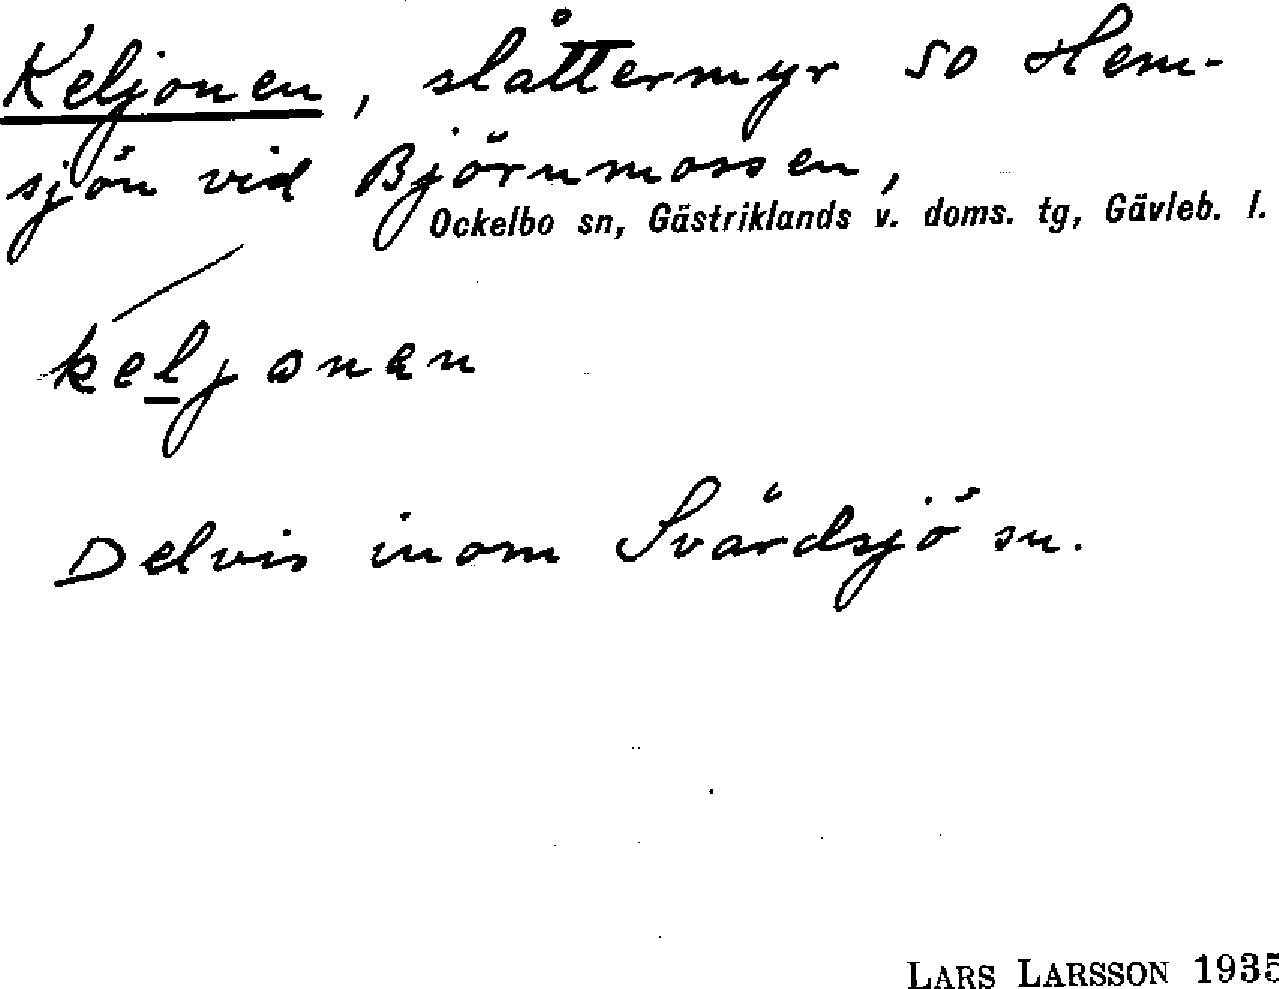 Keljonen, slåttermyr SO Hem-
sjön vid Björnmossen,
Ockelbo sn, Gästriklands v. doms. tg, Gävleb. l.
keljonan
Delvis inom Svärdsjö sn.
LARS LARSSON 1935